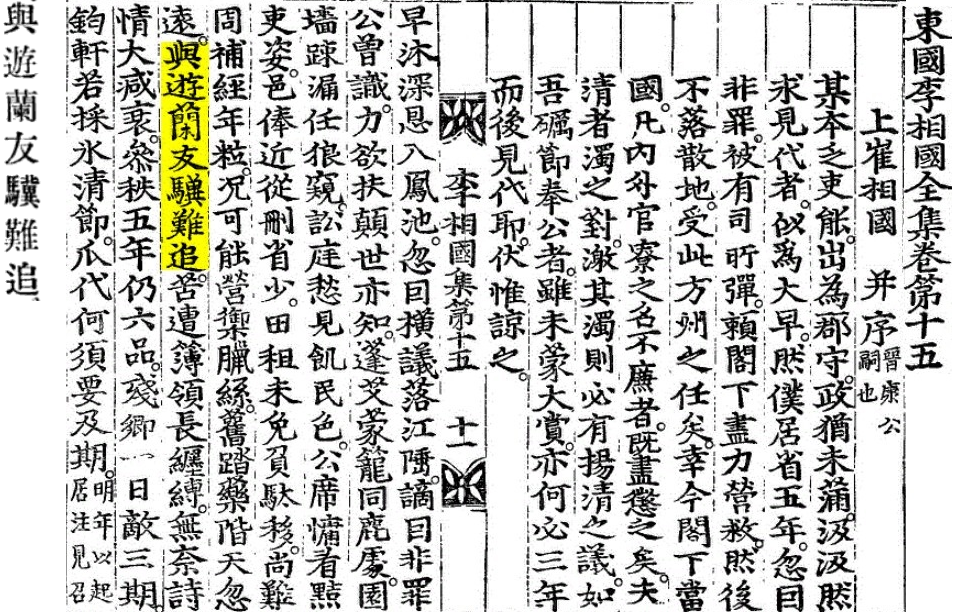 東國李相國全集卷第十五
上崔相國 并序 晉康公嗣也
某本乏吏能。出為郡守。政猶未蒲。汲汲然
求見代者。似為大早。然僕居省五年。忽囙
非罪。被有司所彈。賴閣下盡力營救。然後
不落散地。受此方州之任矣。幸今閣下當
國。凡内外官寮之名不廉者。旣盡懲之矣。夫
清者濁之對。激其濁則必有揚清之議。如
吾礪節奉公者。雖未蒙大賞。亦何必三年
而後見代耶。伏惟諒之。
李相國集第十五 十一
早沐深恩入鳳池。忽囙橫議落江陲。謫囙非罪
公曾識。力欲扶顛世亦知。蓬艾蒙籠同鹿處。園
墻踈漏任狼窺。訟庭愁見飢民色。公席慵看黠
吏姿。邑俸近從刪省少。田租未免貟馱移。尚難
周補經年粒。况可能營禦臘絲。舊踏藥階天忽
遠。與遊蘭友驥難追。苦遭簿領長纏縛。無奈詩
情大减衰。叅秩五年仍六品。殘鄉一日敵三期。
鈞軒若採氷清節。爪代何須要及期。明年以起居注見召
與遊蘭友驥難追